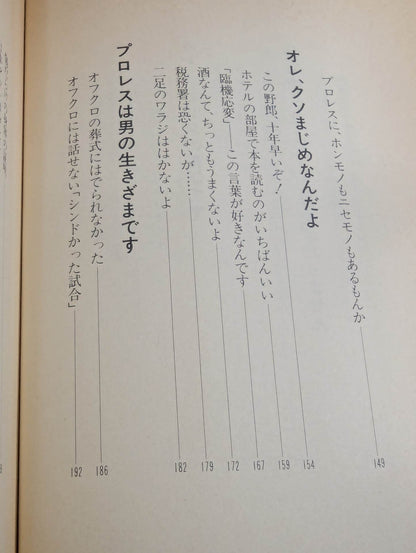 プロレスに、ホンモノもニセモノもあるもんか 149
オレ、クソまじめなんだよ
この野郎、十年早いぞ！ 154
ホテルの部屋で本を読むのがいちばんいい 159
「臨機応変」――この言葉が好きなんです 167
酒なんて、ちっともうまくないよ 172
税務署は恐くないが…… 179
二足のワラジははかないよ 182
プロレスは男の生きざまです
オフクロの葬式にはでられなかった 186
オフクロには話せない「シンドかった試合」 192